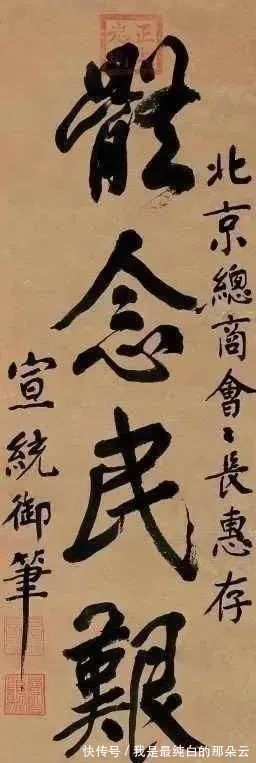 北京總商會〻長惠存
體念民艱
宣統御筆
快传号/我是最纯白的那朵云